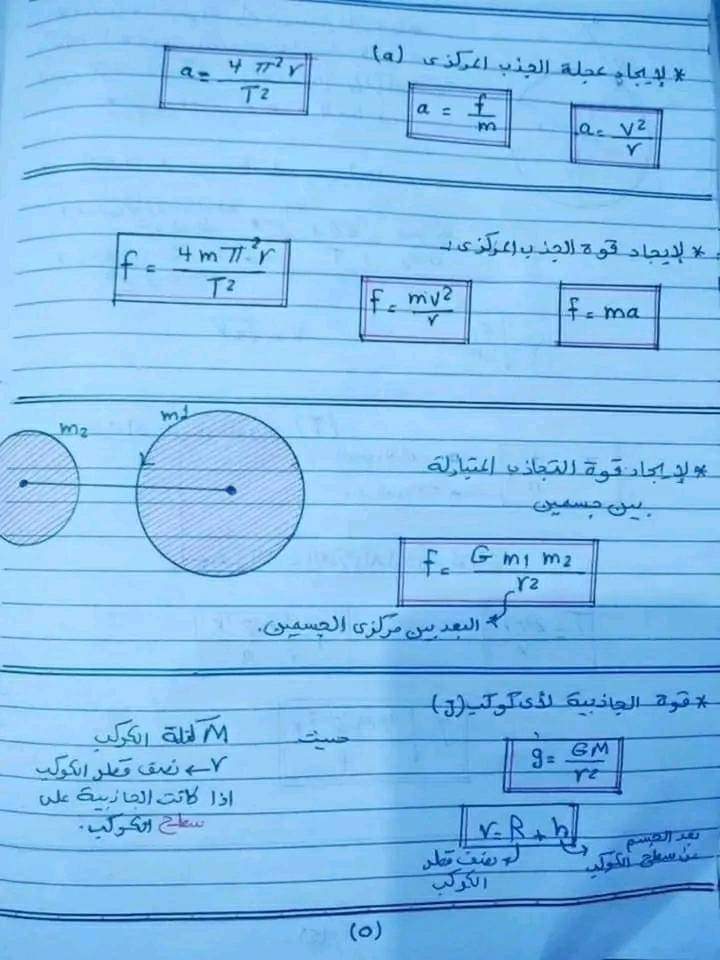 * لإيجاد عجلة الجذب المركزى (a)
a = v²/r
a = f/m
a = 4π²r/T²
* لإيجاد قوة الجذب المركزى :-
f = ma
f = mv²/r
f = 4mπ²r/T²
* لإيجاد قوة التجاذب المتبادلة
بين جسمين
m1
m2
r
f = G m1 m2/r2
* البعد بين مركزى الجسمين.
* قوة الجاذبية لأى كوكب (g)
g = GM/r²
حيث
M كتلة الكوكب
r ← نصف قطر الكوكب
اذا كانت الجاذبية على
سطح الكوكب.
r = R + h
بعد الجسم
عن سطح الكوكب
نصف قطر
الكوكب
(٥)